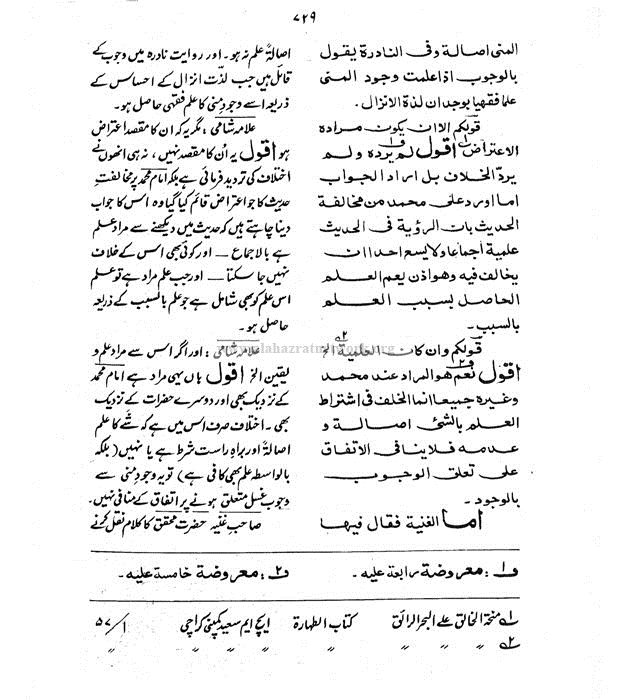 ۷۲۹
المنی اصالۃ وفی النادرۃ یقول
بالوجوب اذا علمت وجود المنی
علما فقھیا بوجدان لذۃ الانزال۔
قولکم الا ان یکون مرادہ
الاعتراض اقول لم یردہ ولم
یرد الخلاف بل اراد الجواب
اما اورد علی محمد من مخالفۃ
الحدیث بان الرؤیۃ فی الحدیث
علمیۃ اجماعا ولا یسع احدا ان
یخالف فیہ وھو اذن یعم العلم
الحاصل بسبب العلم
بالسبب۔
قولکم وان کانت العلمیۃ الخ
اقول نعم ھو المراد عند محمد
وغیرہ جمیعا انما الخلف فی اشتراط
العلم بالشیئ اصالۃ و
عدمہ فلا ینافی الاتفاق
علی تعلق الوجوب
بالوجود۔
اما الغنیۃ فقال فیھا
اصالۃً علم نہ ہو۔ اور روایت نادرہ میں وجوب کے
قائل ہیں جب لذّت انزال کے احساس کے
ذریعہ اسے وجودِ منی کا علم فقہی حاصل ہو۔
علامہ شامی : مگر یہ کہ ان کا مقصد اعتراض
ہو اقول یہ اُن کا مقصد نہیں ، نہ ہی انھوں نے
اختلاف کی تردید فرمائی ہے بلکہ امام محمد پر مخالفتِ
حدیث کا جو اعتراض قائم کیا گیا وہ اس کا جواب
دینا چاہتے ہیں کہ حدیث میں دیکھنے سے مراد علم
ہے بالاجماع ــ اور کوئی بھی اس کے خلاف
نہیں جا سکتا ــ اور جب علم مراد ہے تو علم
اس علم کو بھی شامل ہے جو علم بالسبب کے ذریعہ
حاصل ہو۔
علامہ شامی : اور اگر اس سے مراد علم و
یقین الخ اقول ہاں یہی مراد ہے امام محمد
کے نزدیک بھی اور دوسرے حضرات کے نزدیک
بھی۔ اختلاف صرف اس میں ہے کہ شَے کا علم
اصالۃً اور براہِ راست شرط ہے یا نہیں (بلکہ
بالواسطہ علم بھی کافی ہے) تو یہ وجودِ منی سے
وجوب غسل متعلق ہونے پر اتفاق کے منافی نہیں۔
صاحبِ غنیہ حضرت محقق کا کلام نقل کرنے
ف۱ : معروضۃ رابعۃ علیہ۔ ف۲ : معروضۃ خامسۃ علیہ۔
۱ منحۃ الخالق علی البحر الرائق کتاب الطہارۃ ایچ ایم سعید کمپنی کراچی ۱/ ۵۷
۲ ؍؍ ؍؍ ؍؍ ؍؍ ؍؍ ؍؍